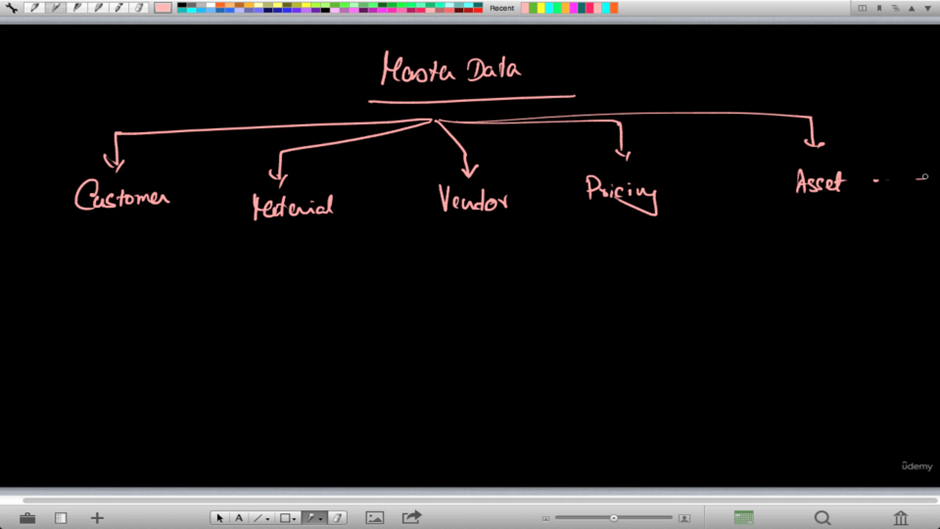 Recent
Master Data
Customer Material Vendor Pricing Asset
udemy
A